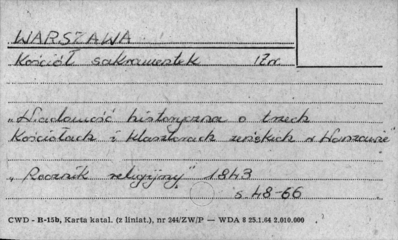 WARSZAWA
Kościół sakramentek 17w.
„Wiadomość historyczna o trzech
Kościołach i klasztorach żeńskich w Warszawie"
„Rocznik religijny" 1843
s. 48-66
CWD - B-15b, Karta katal. (z liniat.), nr 244/ZW/P — WDA 8 25.1.64 2.010.000